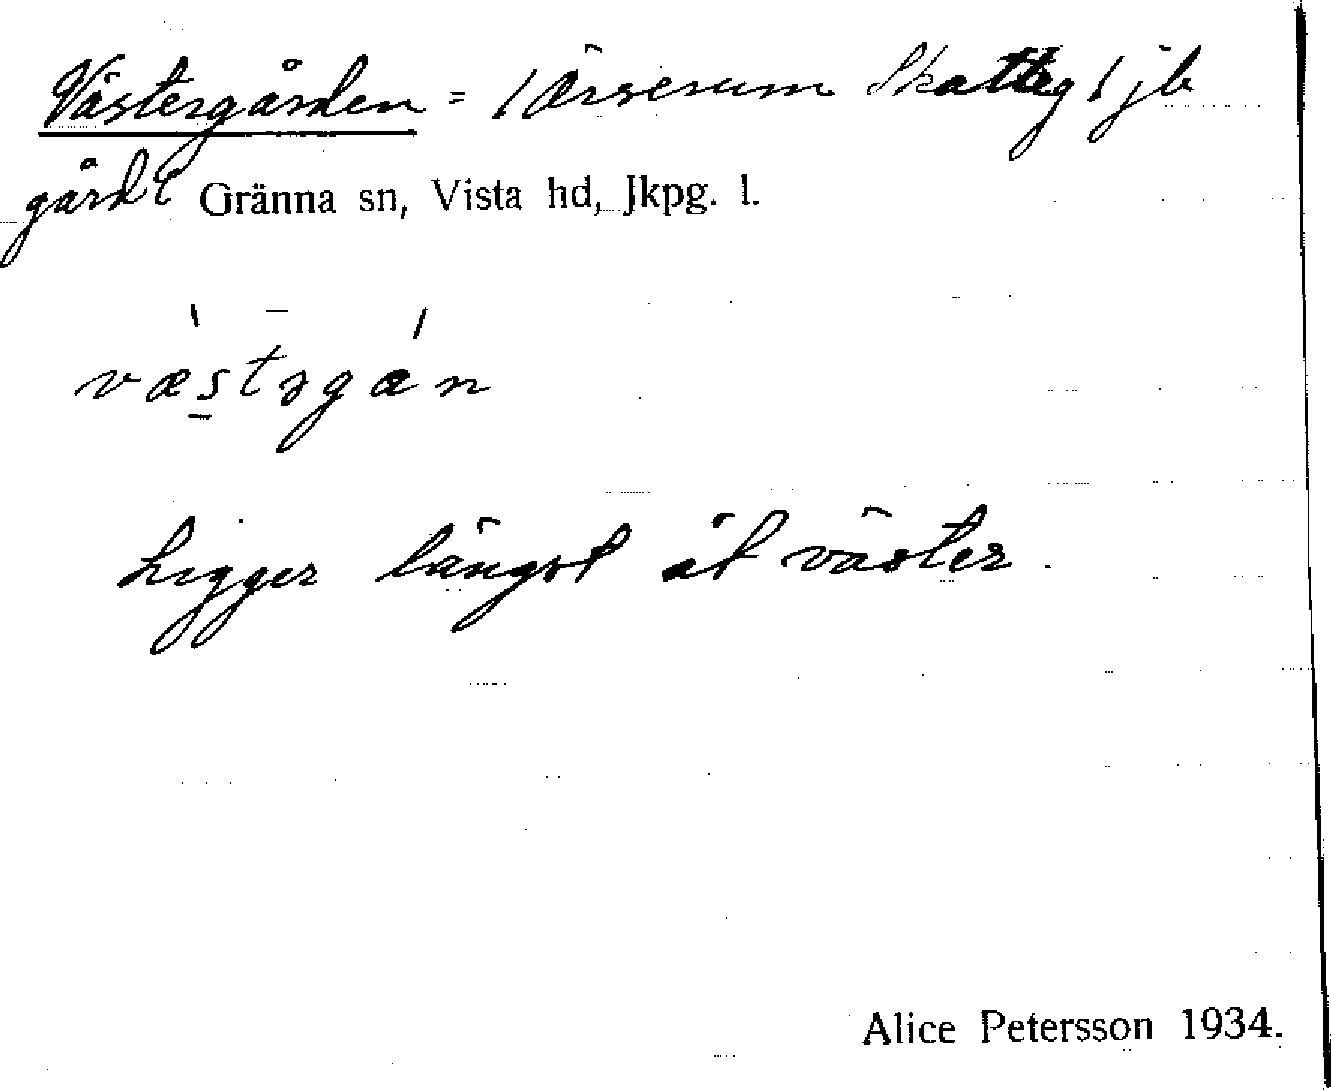 Västergården = /Örserum Skatteg/ jb
gård Gränna sn, Vista hd, Jkpg. l.
væstrgán
Ligger längst åt väster.
Alice Petersson 1934.